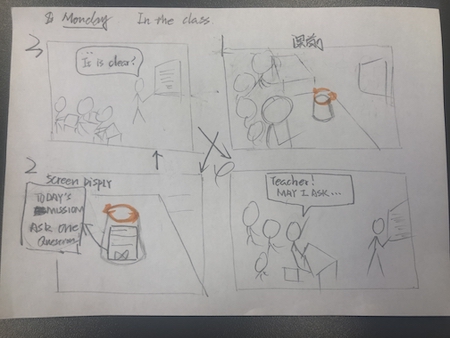 Monday In the class
Is is clear?
课前
2
Screen Disply
TODAY'S
MISSION
ASK One
Question
Teacher!
MAY I ASK...